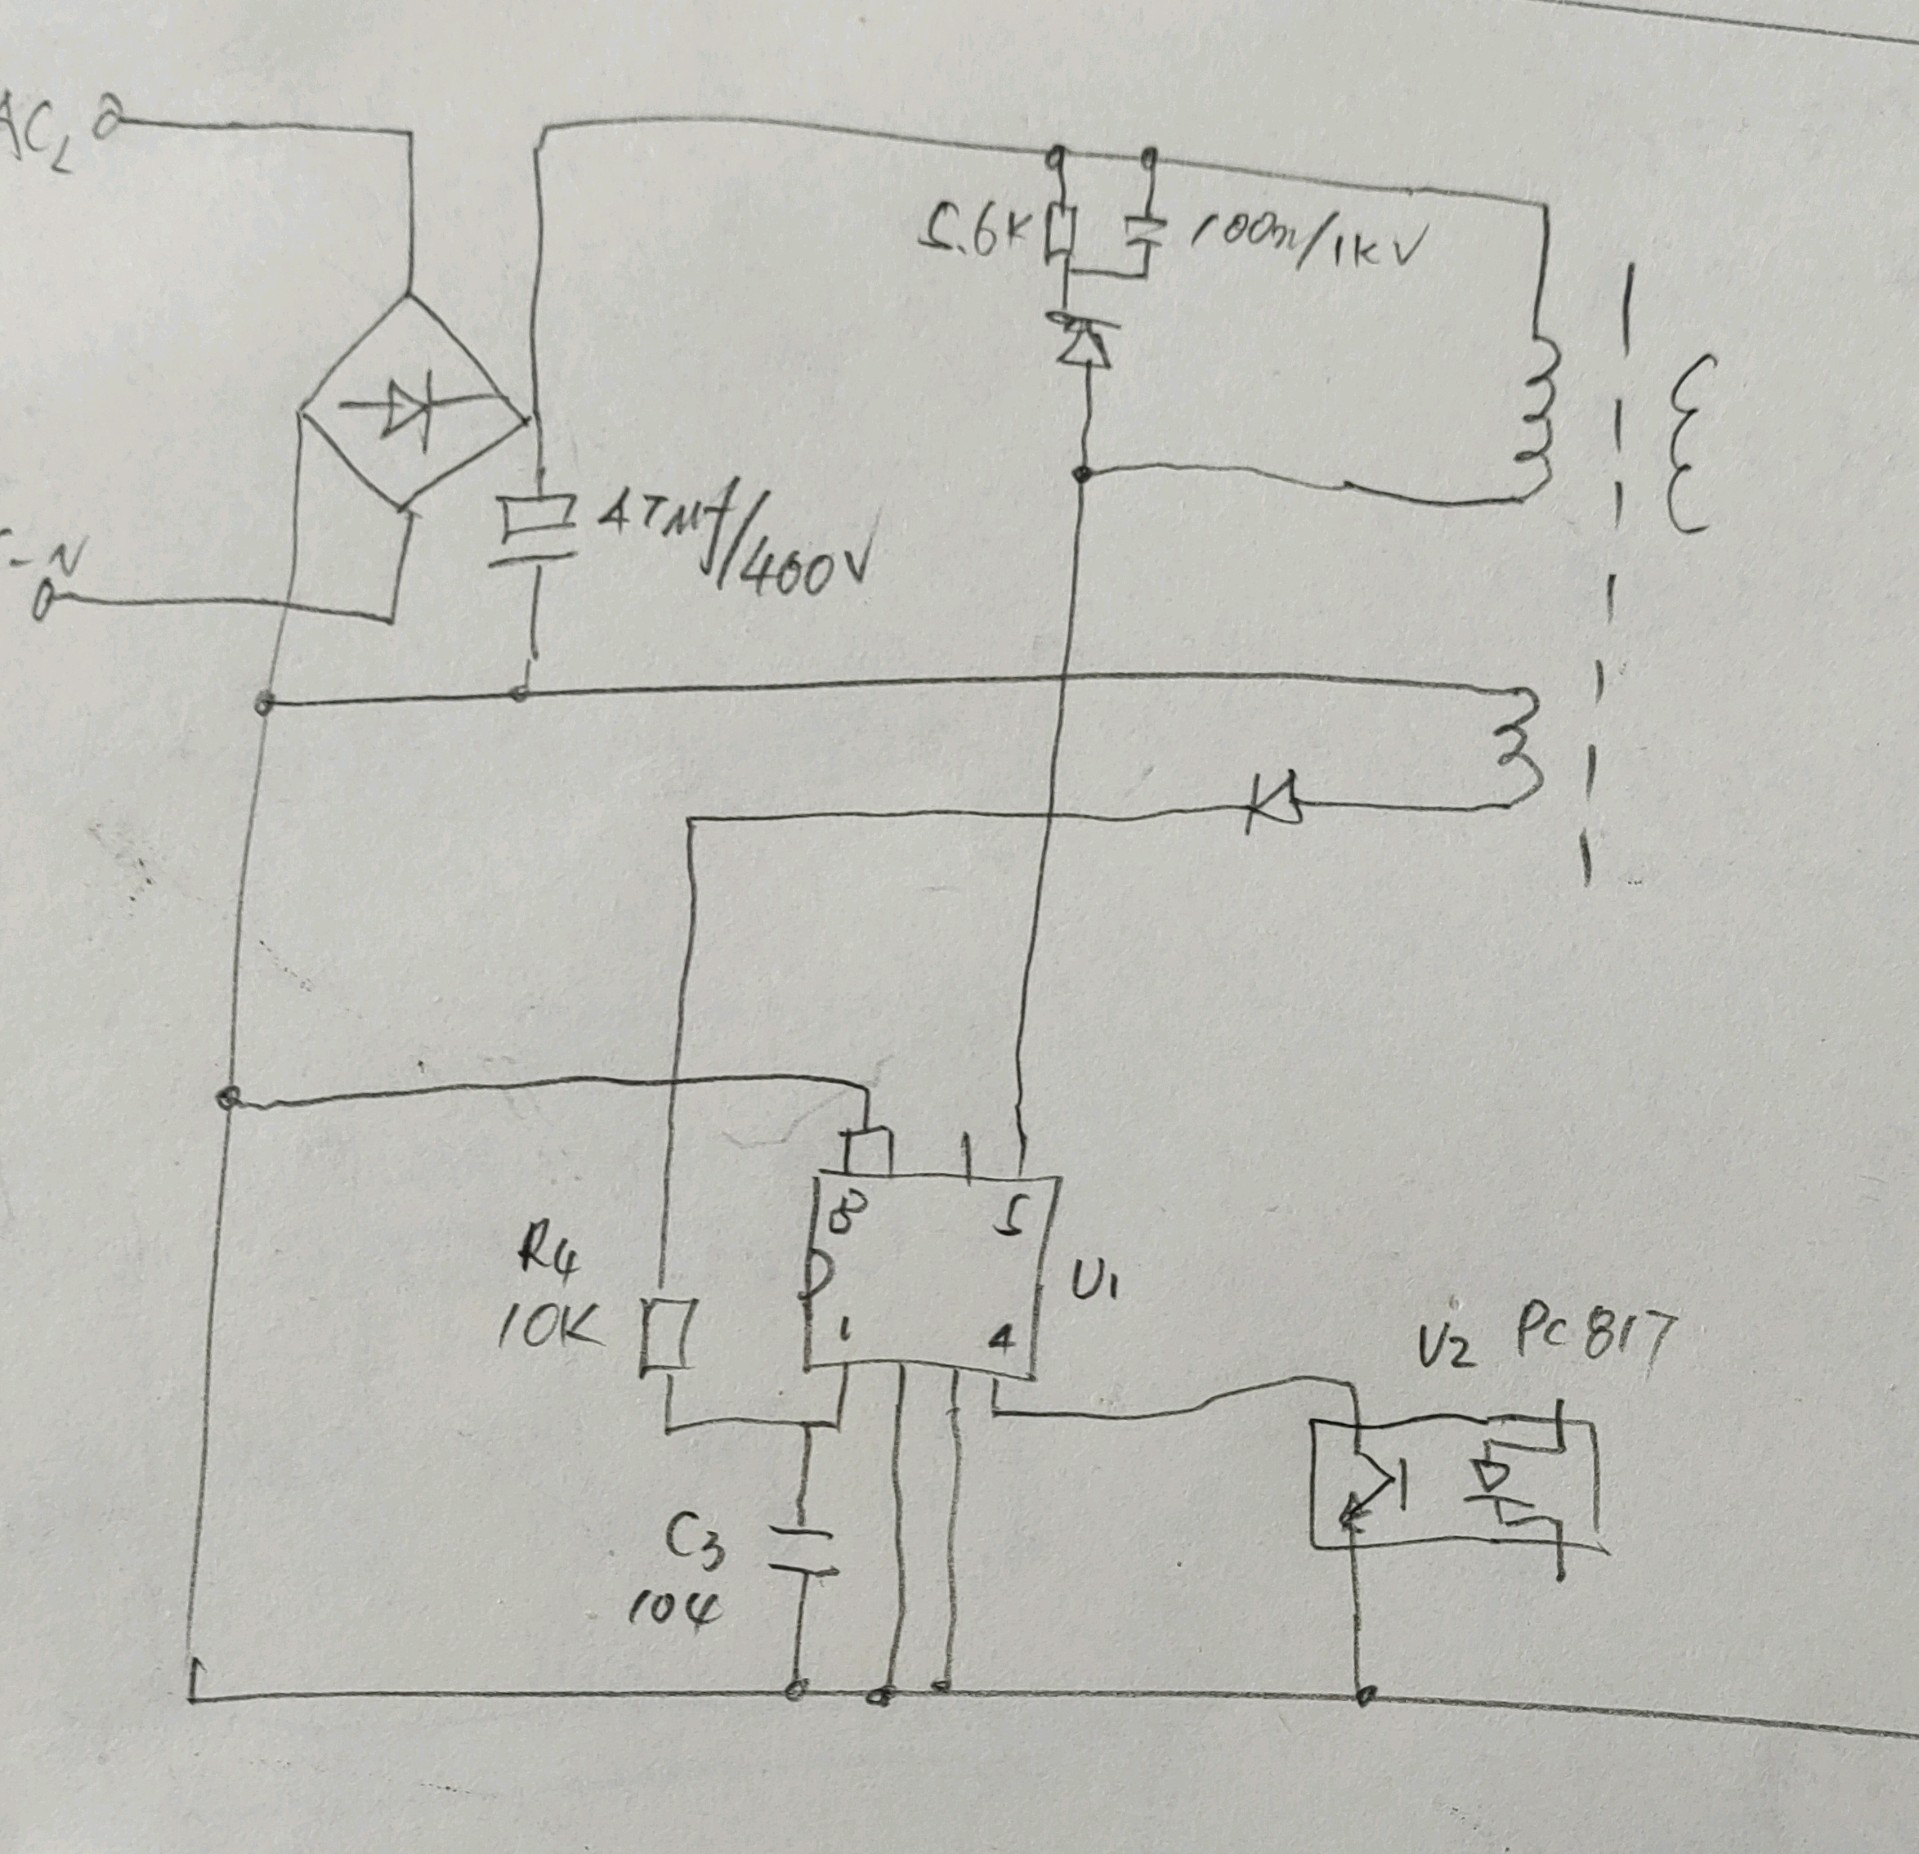 AC L
5.6K
100n/1KV
-N
47Mf/400V
8
5
R4
10K
U1
1
4
U2 PC817
C3
104